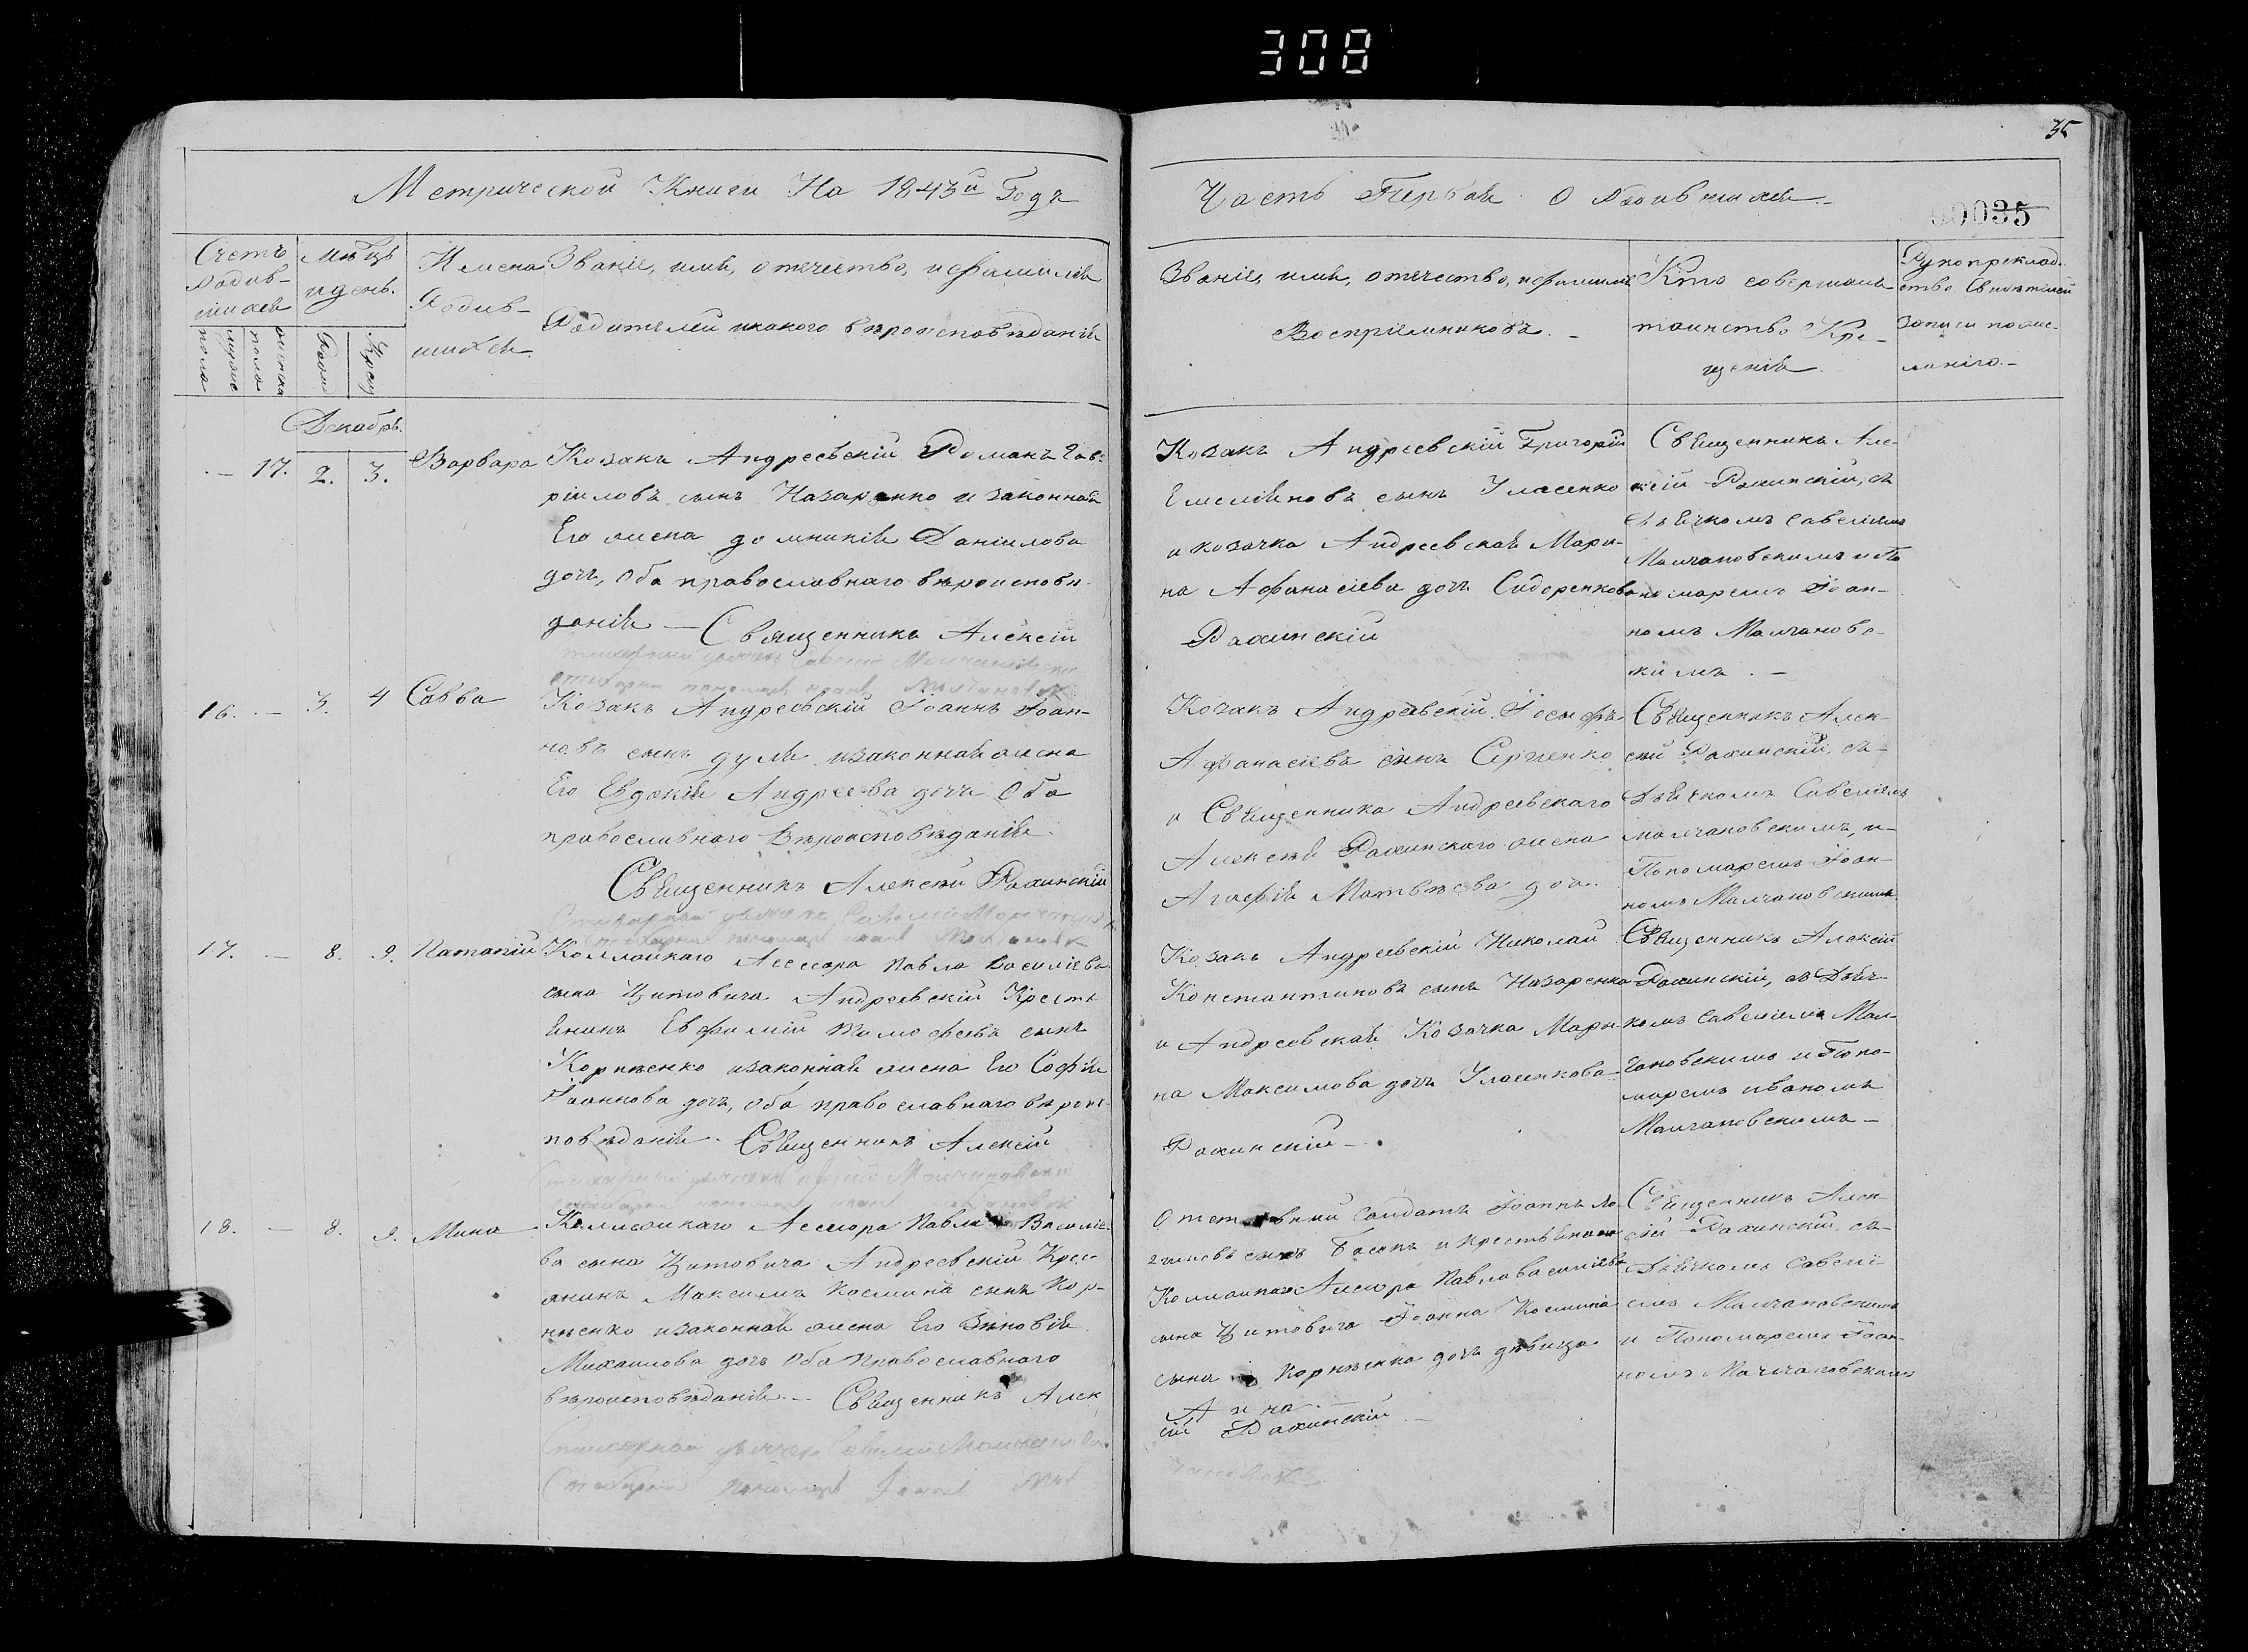 308
35
Метрической Книги На 1843й Годъ
Часть Первая О Родившихся
00035
Счетъ родив-шихся
мужеска пола
женска пола
Мѣсяцъ и день.
Рожд
Крещ
Имена Родив-шихся.
Званіе, имя, отчество, и фамилія
Родителей и какого вѣроисповѣданія
Званіе, имя, отчество, и фамилія
Воспріемниковъ.
Кто совершалъ
таинство Кре-
щенія
Рукоприклад-
ство Свидѣтелей
записи по же-
ланію.
Декабрь.
17. 2. 3. Варвара
Козакъ Андреевскій Романъ Гав-
ріиловъ сынъ Назаренко и законная
Его жена домникія Даніилова
дочь, оба православнаго вѣроисповѣ-
данія — Священникъ Алексій
Козакъ Андреевскій Григорій
Емеліановъ сынъ Уласенко
и козачка Андреевская Мари-
на Афанасіева дочь Сидоренкова
Рахинскій
Священникъ Але-
ксій Рахинскій, съ
Дьячкомъ Савеліемъ
Молчановскимъ и По-
номаремъ Іоан-
номъ Молчановс-
кимъ. —
16. — 3. 4 Савва
Козакъ Андреевскій Іоаннъ Іоан-
новъ сынъ дуля изаконная жена
Его Евдокія Андреева дочь Оба
православнаго Вѣроисповѣданія.
Священникъ Алексій Рахинскій
Козакъ Андреевскій Іосифъ
Афанасіевъ сынъ Сергіенко
и Священника Андреевскаго
Алексія Рахинскаго жена
Агафія Матвѣева дочь.
Священникъ Алек-
сій Рахинскій, съ
Дьячкомъ Савеліемъ
молчановскимъ, и
Пономаремъ Іоан-
номъ Молчановскимъ.
17. — 8. 9. Патапій
Коллежскаго Асесора Павла Василіева
сына Цитовича Андреевскій Крестъ-
янинъ Евфимій Тимофеевъ сынъ
Корнѣенко изаконная жена Его Софія
Іоаннова дочь, Оба православнаго вѣроис-
повѣданія. Священникъ Алексій
Козакъ Андреевскій Николай
Константиновъ сынъ Назаренко
и Андреевская Козачка Мари-
на Максимова дочь Уласенкова
Рахинскій
Священникъ Алексій
Рахинскій, съ Дьяч-
комъ Савеліемъ Мол-
чановскимъ и Поно-
маремъ иваномъ
Молчановскимъ —
18. — 8. 9. Мина
Коллежскаго Асесора Павла Василіе-
ва сына Цитовича Андреевскій Крес-
янинъ Максимъ Космина сынъ Кор-
нѣенко изаконная жена Его Зѣновія
Михаилова дочь Оба Православнаго
вѣроисповѣданія. — Священникъ Алек
Отставный Солдатъ Іоаннъ
сынъ и крестьянина
Коллежскаго Асесора Павла Василіева
сына Цитовича Іоанна Космина
сына Корнѣенка дочь дѣвица
Анна
сій Рахинскій
Священникъ Алек-
сій Рахинскій, съ
Дьячкомъ Савелі-
емъ Молчановскимъ
и Пономаремъ Іоан-
номъ Молчановскимъ